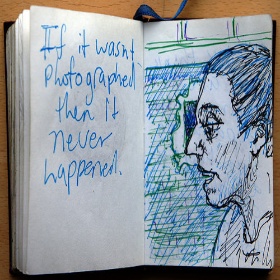 If it wasnt
Photographed
then it
never
happened.